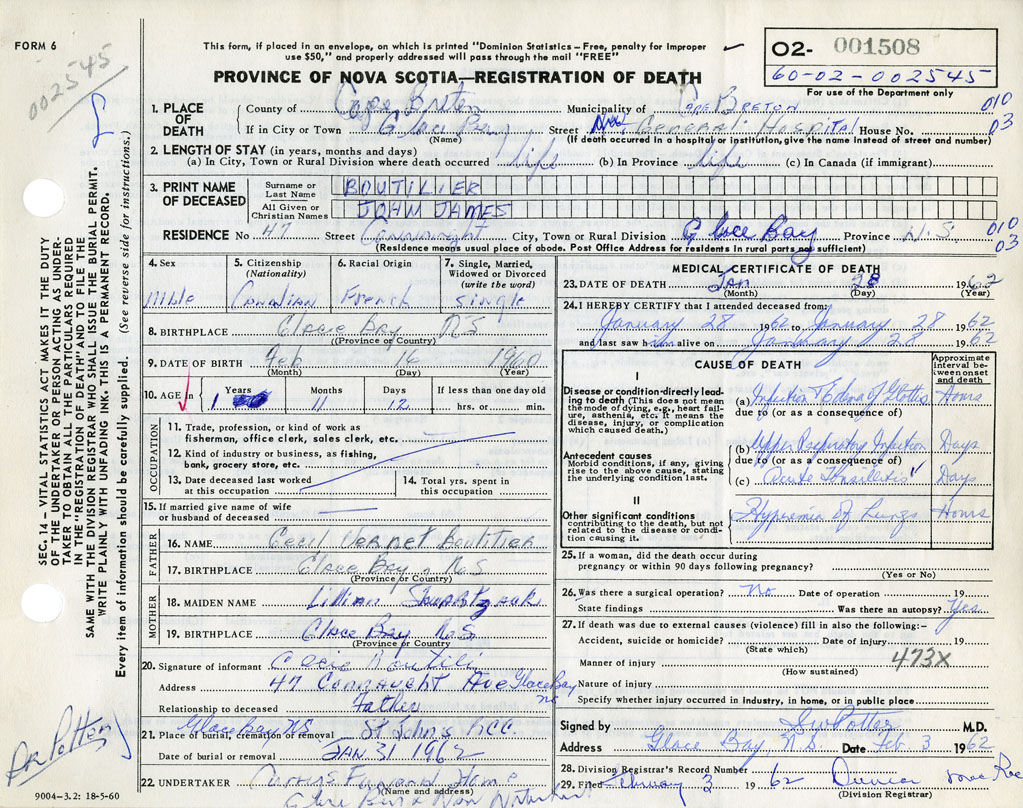 FORM 6
002545
This form, if placed in an envelope, on which is printed "Dominion Statistics – Free, penalty for Improper
use $50," and properly addressed will pass through the mail "FREE"
PROVINCE OF NOVA SCOTIA—REGISTRATION OF DEATH
02- 001508
60-02-002545
For use of the Department only
1. PLACE OF DEATH
County of Cape Breton
Municipality of Cape Breton
010
If in City or Town Glace Bay
(Name)
Street General Hospital House No.
03
(If death occurred in a hospital or institution, give the name instead of street and number)
2. LENGTH OF STAY (in years, months and days)
(a) In City, Town or Rural Division where death occurred life (b) In Province life (c) In Canada (if immigrant)
3. PRINT NAME OF DECEASED
Surname or Last Name BOUTILIER
All Given or Christian Names JOHN JAMES
RESIDENCE No 47 Street Connaught City, Town or Rural Division Glace Bay Province N.S
010
03
(Residence means usual place of abode. Post Office Address for residents in rural parts not sufficient)
4. Sex Male
5. Citizenship (Nationality) Canadian
6. Racial Origin French
7. Single, Married, Widowed or Divorced (write the word) Single
8. BIRTHPLACE Glace Bay NS
(Province or Country)
9. DATE OF BIRTH Feb 16 1960
(Month) (Day) (Year)
10. AGE in Years 1 Months 11 Days 12 If less than one day old hrs. or min.
OCCUPATION
11. Trade, profession, or kind of work as fisherman, office clerk, sales clerk, etc.
12. Kind of industry or business, as fishing, bank, grocery store, etc.
13. Date deceased last worked at this occupation
14. Total yrs. spent in this occupation
15. If married give name of wife or husband of deceased
FATHER
16. NAME Cecil Vernet Boutilier
17. BIRTHPLACE Glace Bay, N.S
(Province or Country)
MOTHER
18. MAIDEN NAME Lillian
19. BIRTHPLACE Glace Bay N.S
(Province or Country)
20. Signature of informant
Address 47 Connaught Ave Glace Bay NS
Relationship to deceased Father
21. Place of burial, cremation or removal Glace Bay NS. St Johns
Date of burial or removal JAN 31 1962
22. UNDERTAKER Curries Funeral Home
(Name and address)
9004-3.2: 18-5-60
MEDICAL CERTIFICATE OF DEATH
23. DATE OF DEATH Jan 28 1962
(Month) (Day) (Year)
24. I HEREBY CERTIFY that I attended deceased from:
January 28 1962 to January 28 1962
and last saw him alive on January 28 1962
CAUSE OF DEATH
Approximate interval between onset and death
I
Disease or condition directly leading to death (This does not mean the mode of dying, e.g., heart failure, asthenia, etc. It means the disease, injury, or complication which caused death.)
(a) Infection & Edema of Glottis Hours
due to (or as a consequence of)
Antecedent causes
Morbid conditions, if any, giving rise to the above cause, stating the underlying condition last.
(b) Upper Respiratory Infection Days
due to (or as a consequence of)
(c) Acute Tonsilitis Days
II
Other significant conditions
contributing to the death, but not related to the disease or condition causing it.
of Lungs Hours
25. If a woman, did the death occur during pregnancy or within 90 days following pregnancy?
(Yes or No)
26. Was there a surgical operation? No Date of operation 19
State findings Was there an autopsy? Yes
27. If death was due to external causes (violence) fill in also the following:-
Accident, suicide or homicide? Date of injury 19
(State which)
473X
Manner of injury
(How sustained)
Nature of injury
Specify whether injury occurred in industry, in home, or in public place
Signed by M.D.
Address Glace Bay, N.S. Date Feb. 3 1962
28. Division Registrar's Record Number
29. Filed February 3 1962 Duncan MacRae
(Division Registrar)
SEC. 14 – VITAL STATISTICS ACT MAKES IT THE DUTY
OF THE UNDERTAKER OR PERSON ACTING AS UNDER-
TAKER TO OBTAIN ALL THE PARTICULARS REQUIRED
IN THE "REGISTRATION OF DEATH" AND TO FILE THE
SAME WITH THE DIVISION REGISTRAR WHO SHALL ISSUE THE BURIAL PERMIT.
WRITE PLAINLY WITH UNFADING INK. THIS IS A PERMANENT RECORD.
Every item of information should be carefully supplied. (See reverse side for instructions.)